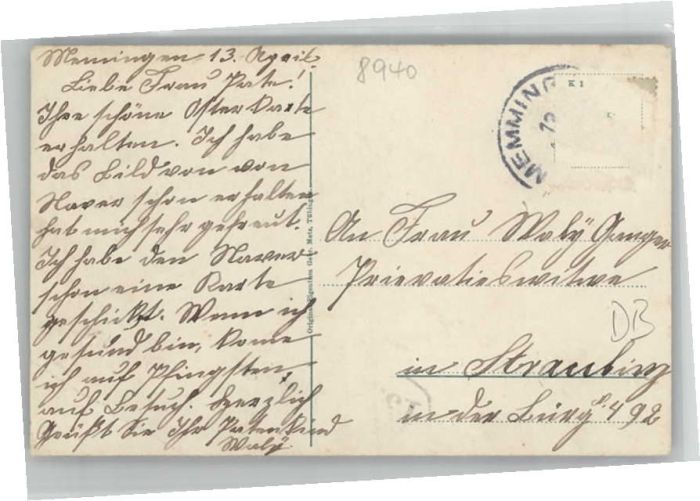 Memingen 13. April.
Liebe Frau Pate!
Ihre schöne Oster Karte
erhalten. Ich habe
das Bild von von
Xaver schon erhalten
hab mich sehr gefreut.
Ich habe den Xaver
schon eine Karte
geschickt. Wenn ich
gesund bin, kome
ich auf Pfingsten,
auf Besuch. Herzlich
Grüßt Sie Ihr Patenkind
Waly
8940
MEMMING
An Frau Waly Ganger
Prievatieswitwe
DB
in Straubing
in der Burg 492